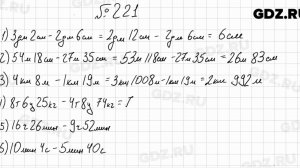 GDZ.RU
№ 221
1) 3дм 2см - 2дм 6см = 2дм 12см - 2дм 6см = 6см
2) 54м 18см - 27м 35см = 53м 118см - 27м 35см = 26м 83см
3) 4км 8м - 1км 19м = 3км 1008м - 1км 19м = 2км 992м
4) 8т 6ц 25кг - 4т 8ц 74кг = 7
5) 16ч 26мин - 9ч 52мин
6) 10мин 4с - 5мин 40с